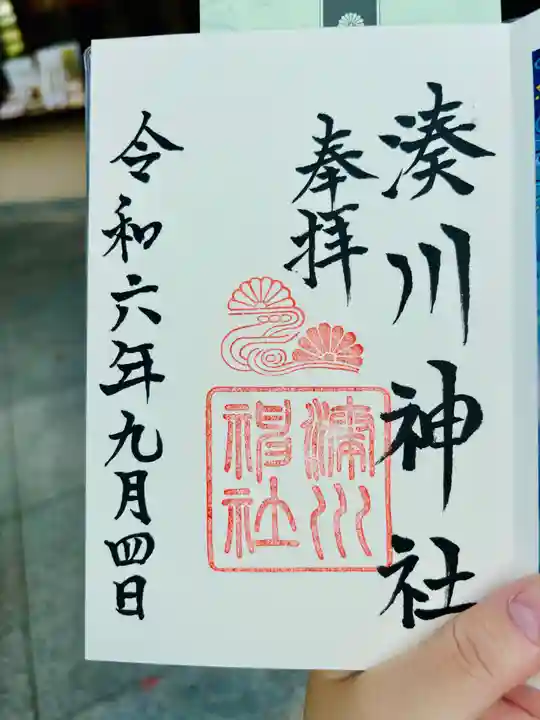 湊川神社
奉拝
湊川
神社
令和六年九月四日